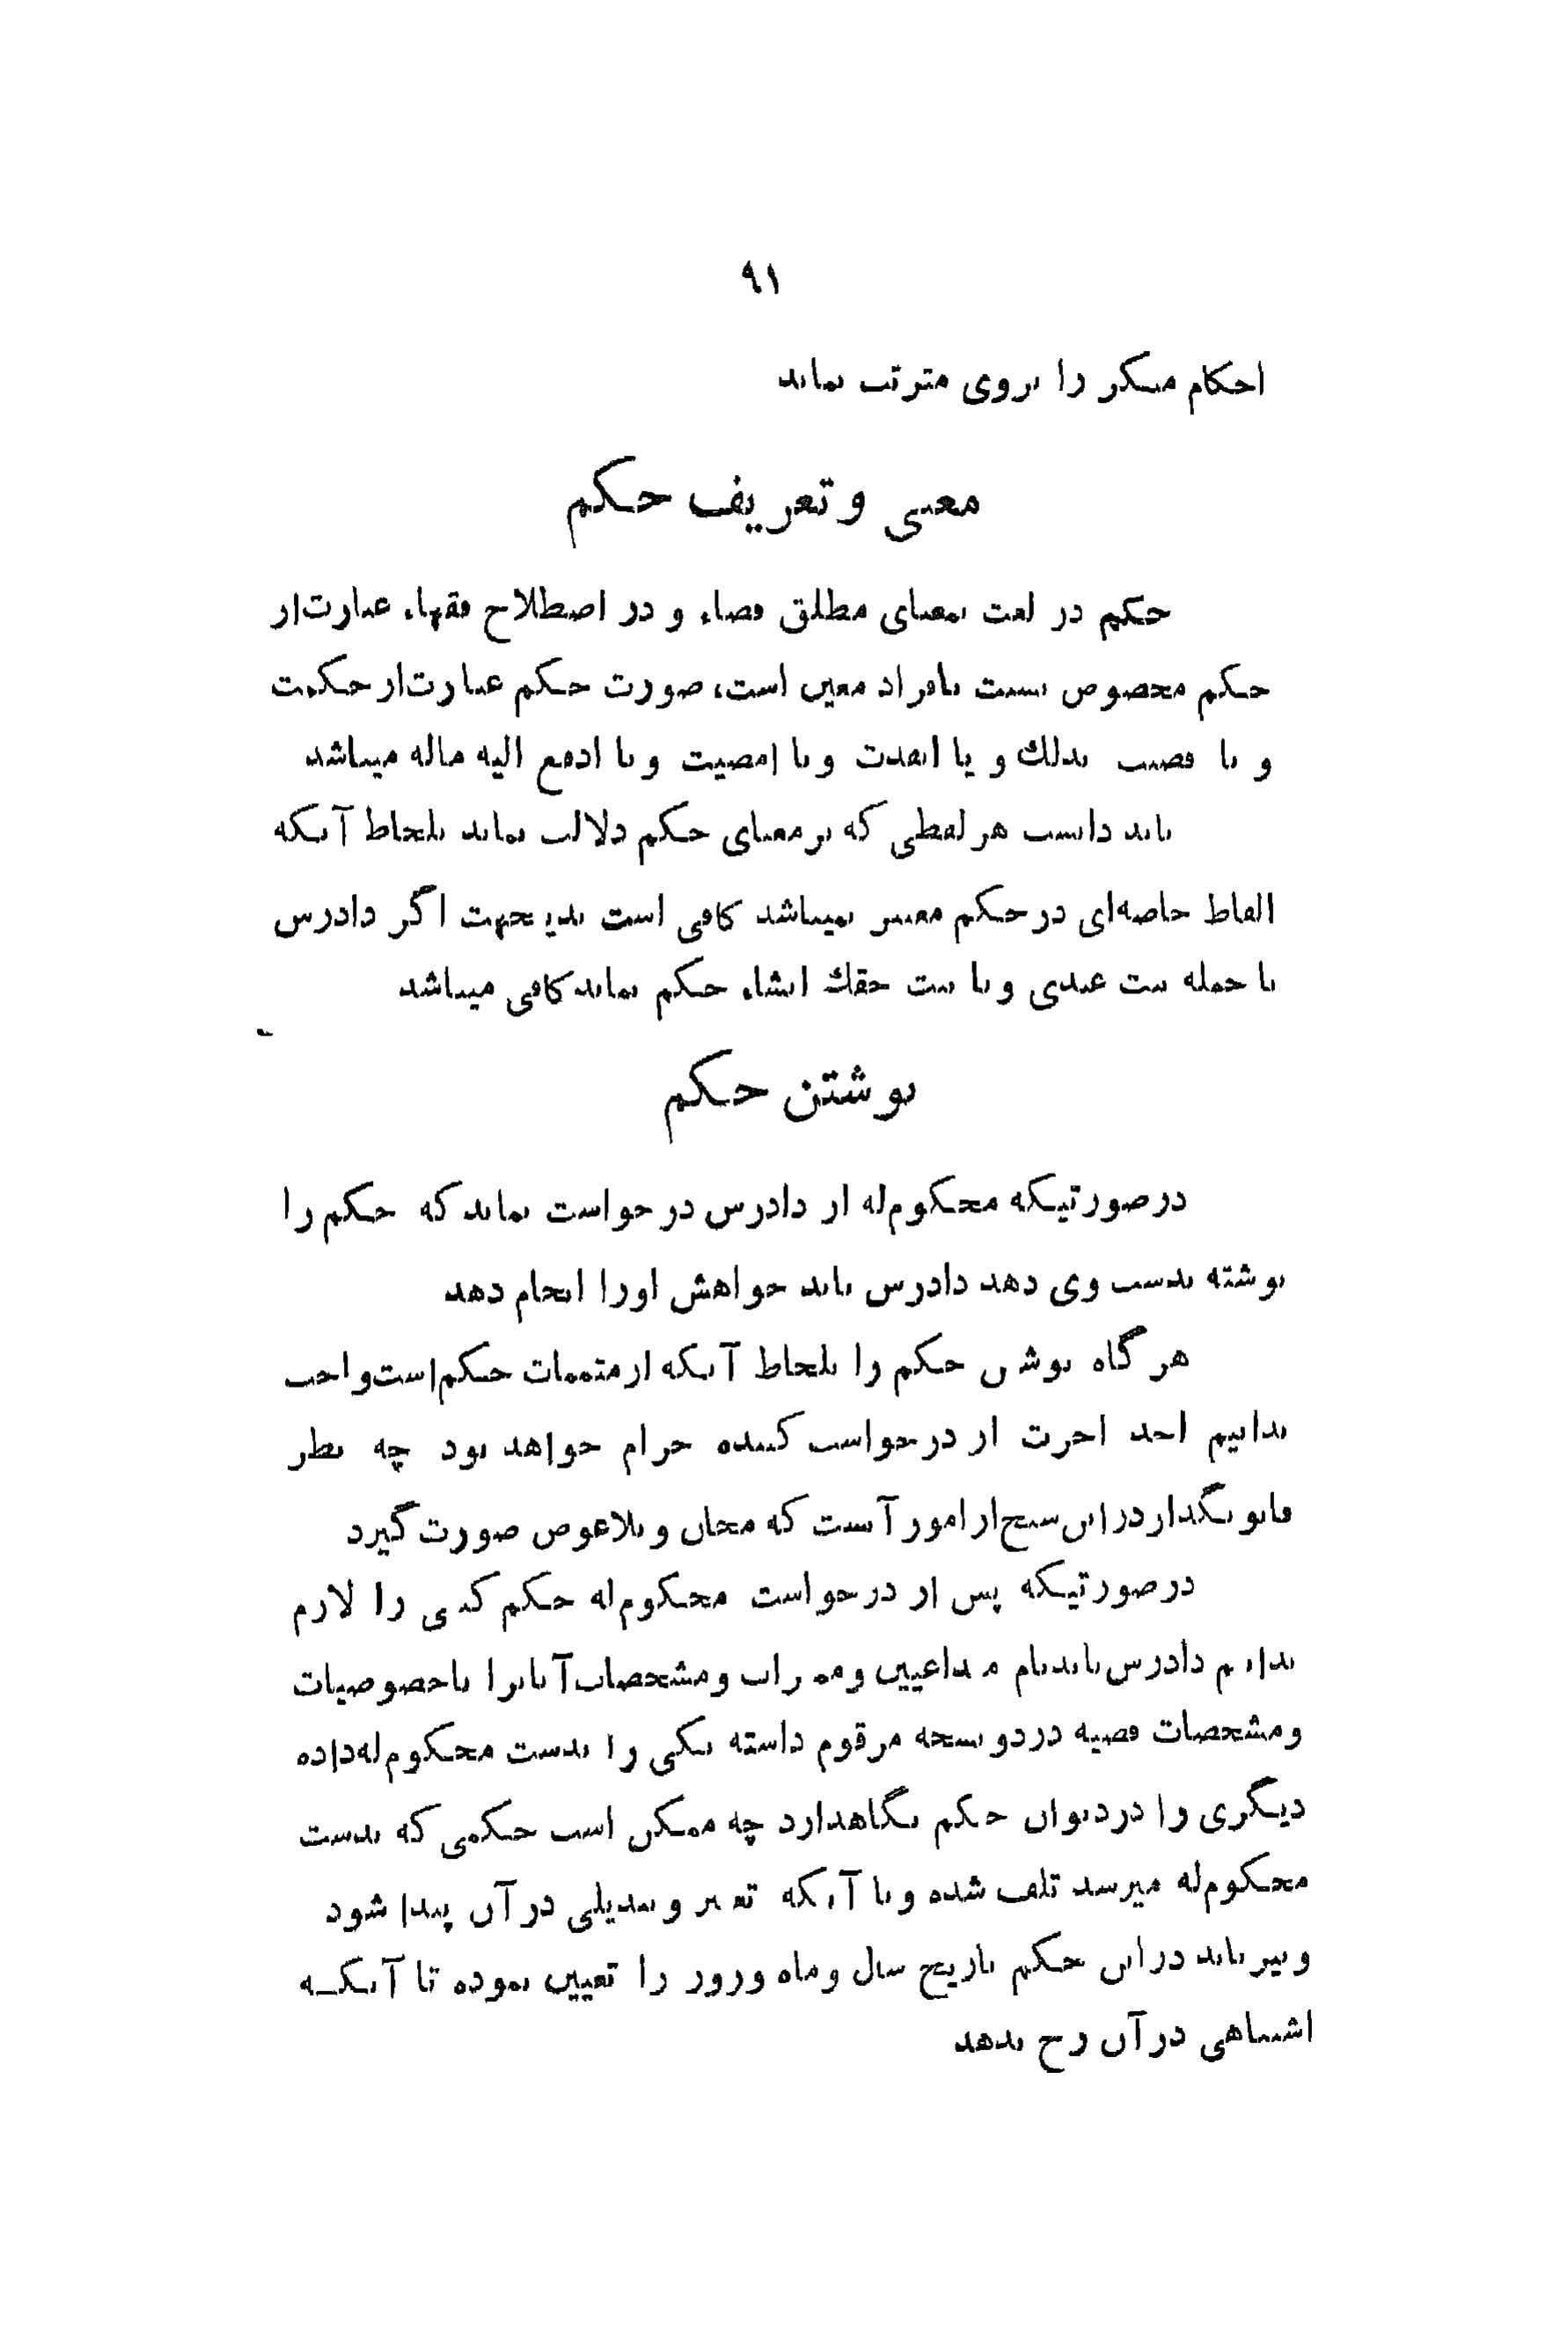 ۹۱
احکام منکر را بروی مترتب نماید
معنی و تعریف حکم
حکم در لغت بمعنای مطلق قضاء و در اصطلاح فقهاء عبارت‌از
حکم مخصوص نسبت بافراد معین است، صورت حکم عبارت‌از حکمت
و یا قضیت بذلك و یا انفذت و یا امضیت و یا ادفع الیه ماله میباشد
باید دانست هر لفظی که بر معنای حکم دلالت نماید بلحاظ آنکه
الفاظ خاصه‌ای در حکم معتبر نمیباشد کافی است بدینجهت اگر دادرس
با جمله ثبت عندی و یا ثبت حقك انشاء حکم نماید کافی میباشد
نوشتن حکم
در صورتیکه محکوم‌له از دادرس درخواست نماید که حکم را
نوشته بدست وی دهد دادرس باید خواهش اورا انجام دهد
هر گاه نوشتن حکم را بلحاظ آنکه از متممات حکم‌است‌واجب
بدانیم اخذ اجرت از درخواست کننده حرام خواهد بود چه نظر
قانونگذار دراین سنخ‌از امور آنست که مجان و بلاعوض صورت گیرد
در صورتیکه پس از درخواست محکوم‌له حکم کتبی را لازم
بدانیم دادرس باید نام متداعیین وممیزات ومشخصات آنانرا باخصوصیات
ومشخصات قضیه در دو نسخه مرقوم داشته یکی را بدست محکوم‌له‌داده
دیگری را دردیوان حکم نگاهدارد چه ممکن است حکمی که بدست
محکوم‌له میرسد تلف شده و یا آنکه تغییر و تبدیلی در آن پیدا شود
ونیز باید دراین حکم تاریخ سال وماه وروز را تعیین نموده تا آنکه
اشتباهی در آن رخ ندهد